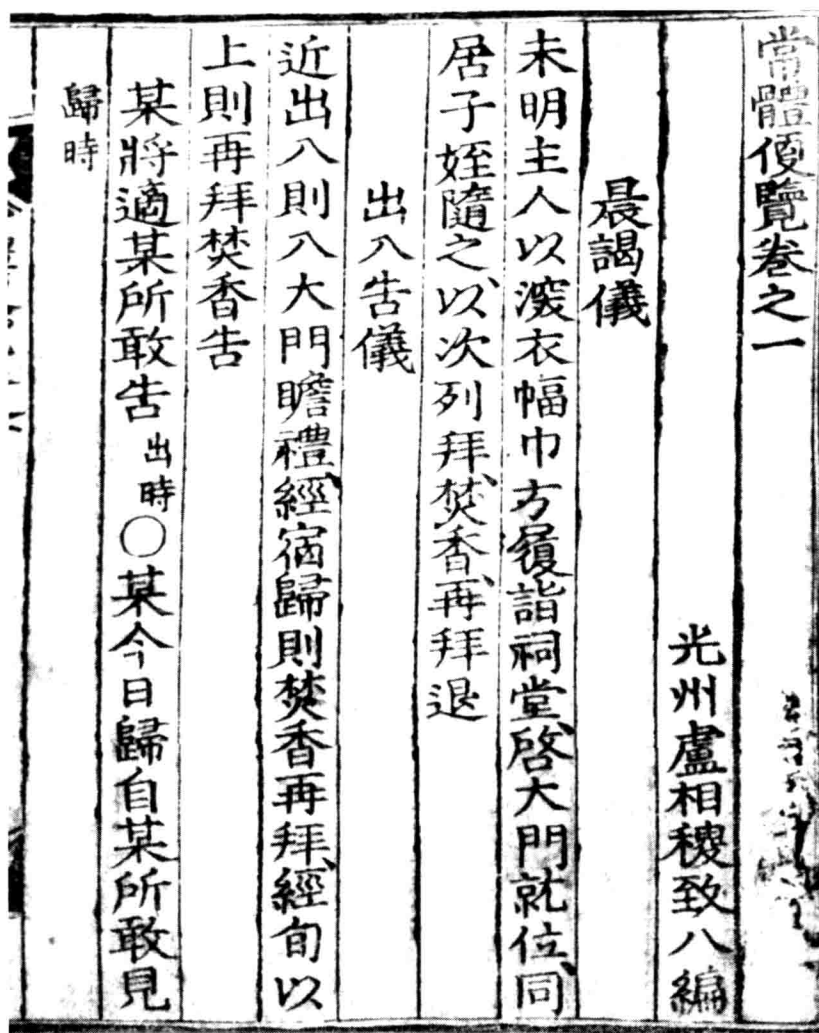 常體便覽卷之一
光州盧相稷致八編
晨謁儀
未明主人以深衣幅巾方履詣祠堂啓大門就位同
居子姪隨之以次列拜焚香再拜退
出入告儀
近出入則入大門瞻禮經宿歸則焚香再拜經旬以
上則再拜焚香告
某將適某所敢告 出時 ○某今日歸自某所敢見
歸時